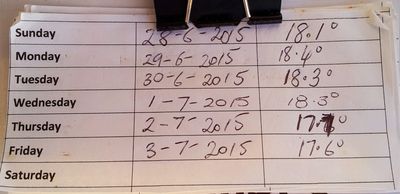 Sunday 28-6-2015 18.1°
Monday 29-6-2015 18.4°
Tuesday 30-6-2015 18.3°
Wednesday 1-7-2015 18.3°
Thursday 2-7-2015
Friday 3-7-2015 17.6°
Saturday